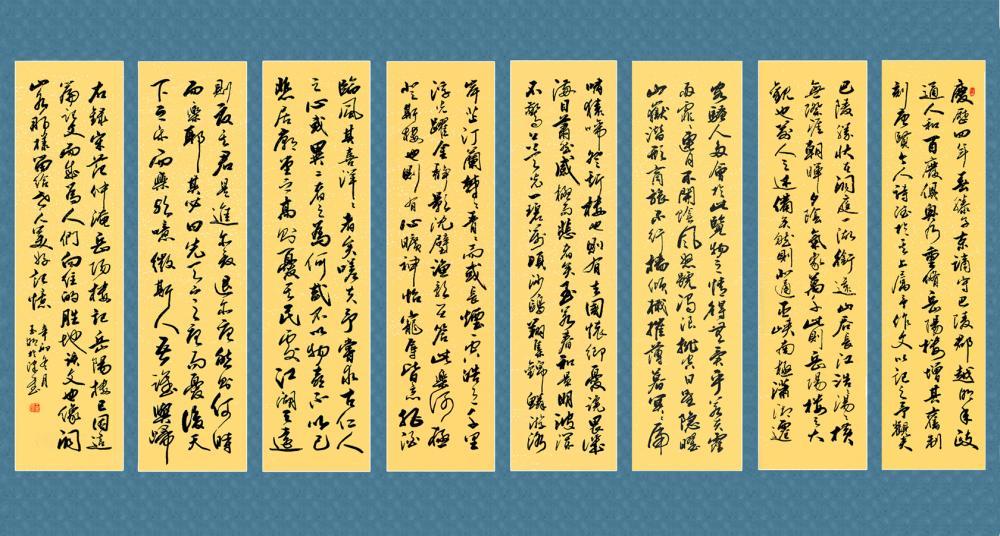 慶歷四年春滕子京謫守巴陵郡越明年政
通人和百廢俱興乃重脩岳陽樓增其舊制
刻唐賢今人詩賦於其上屬予作文以記之予觀夫
巴陵勝狀在洞庭一湖銜遠山吞長江浩〻湯〻橫
無際涯朝暉夕陰氣象萬千此則岳陽樓之大
觀也前人之述備矣然則北通巫峽南極瀟湘遷
客騷人多會於此覽物之情得無異乎若夫霪
雨霏〻連月不開陰風怒號濁浪排空日星隱曜
山嶽潛形商旅不行檣傾楫摧薄暮冥〻虎
嘯猿啼登斯樓也則有去國懷鄉憂讒畏譏
滿目蕭然感極而悲者矣至若春和景明波瀾
不驚上下天光一碧萬頃沙鷗翔集錦鱗游泳
岸芷汀蘭郁〻青〻而或長煙一空皓月千里
浮光躍金靜影沈璧漁歌互答此樂何極
登斯樓也則有心曠神怡寵辱皆忘把酒
臨風其喜洋〻者矣嗟夫予嘗求古仁人
之心或異二者之為何哉不以物喜不以己
悲居廟堂之高則憂其民處江湖之遠
則憂其君是進亦憂退亦憂然則何時
而樂耶其必曰先天下之憂而憂後天
下之樂而樂歟噫微斯人吾誰與歸
右錄宋范仲淹岳陽樓記岳陽樓已因這
篇文而成為人們向往的勝地該文也像洞
那樣留給世人美好記憶
辛卯冬月